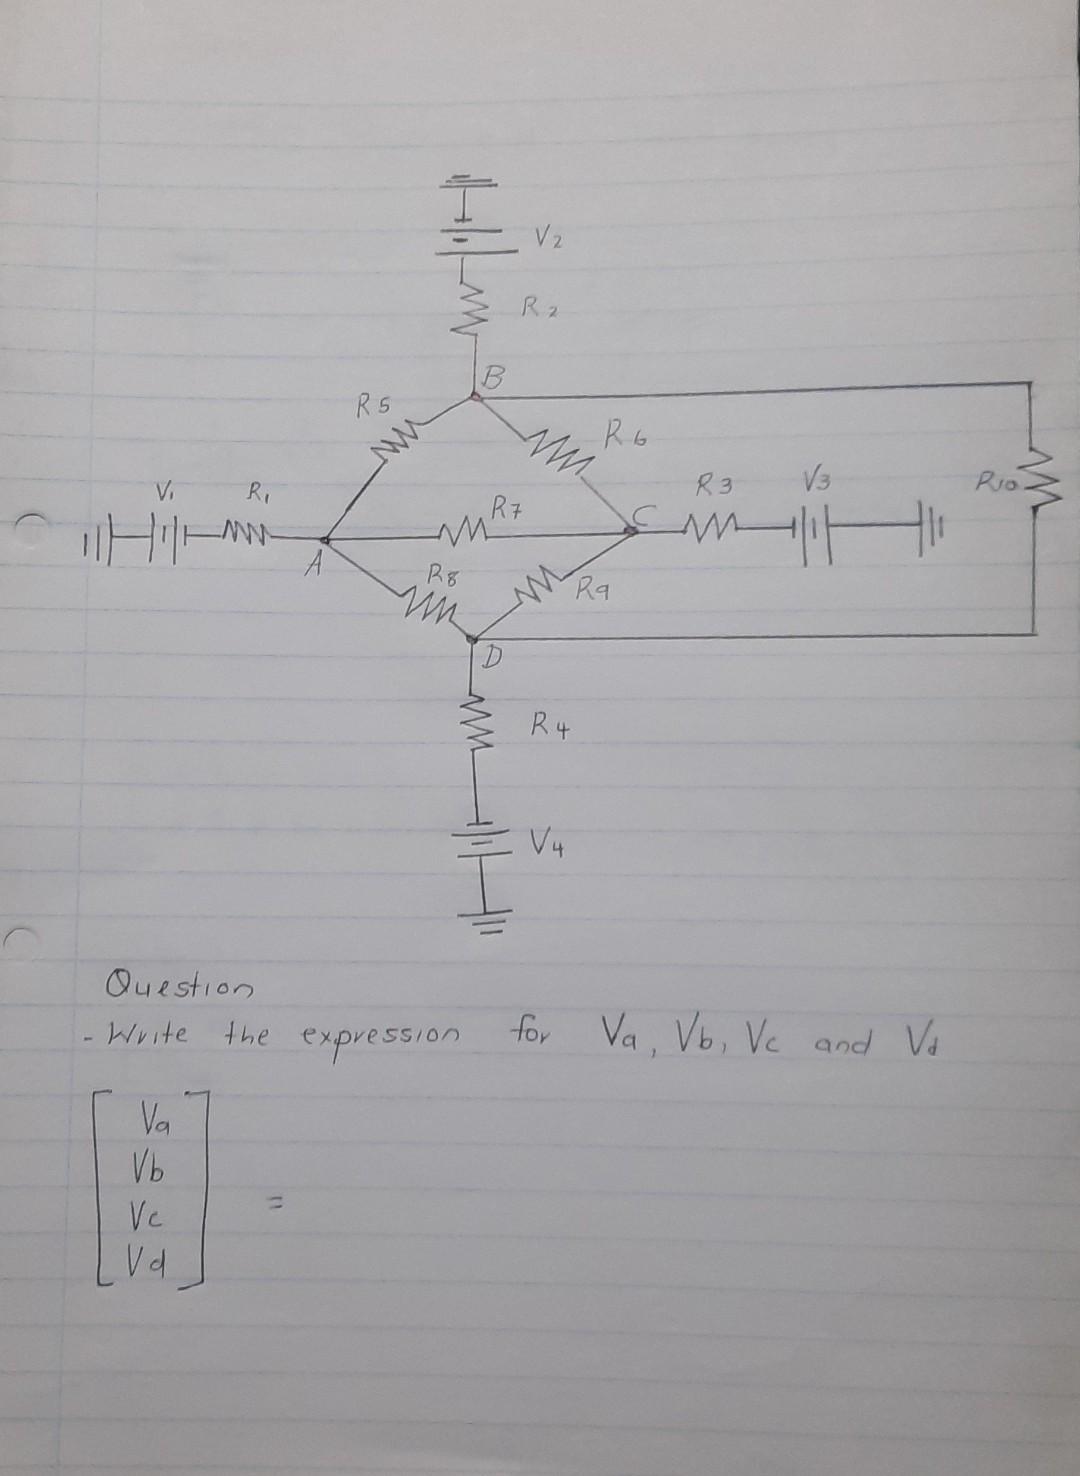 V2
R2
B
R5
R6
V1
R1
R7
C
R3
V3
R10
A
R8
R9
D
R4
V4
Question
- Write the expression for Va, Vb, Vc and Vd
Va
Vb
Vc
Vd
=